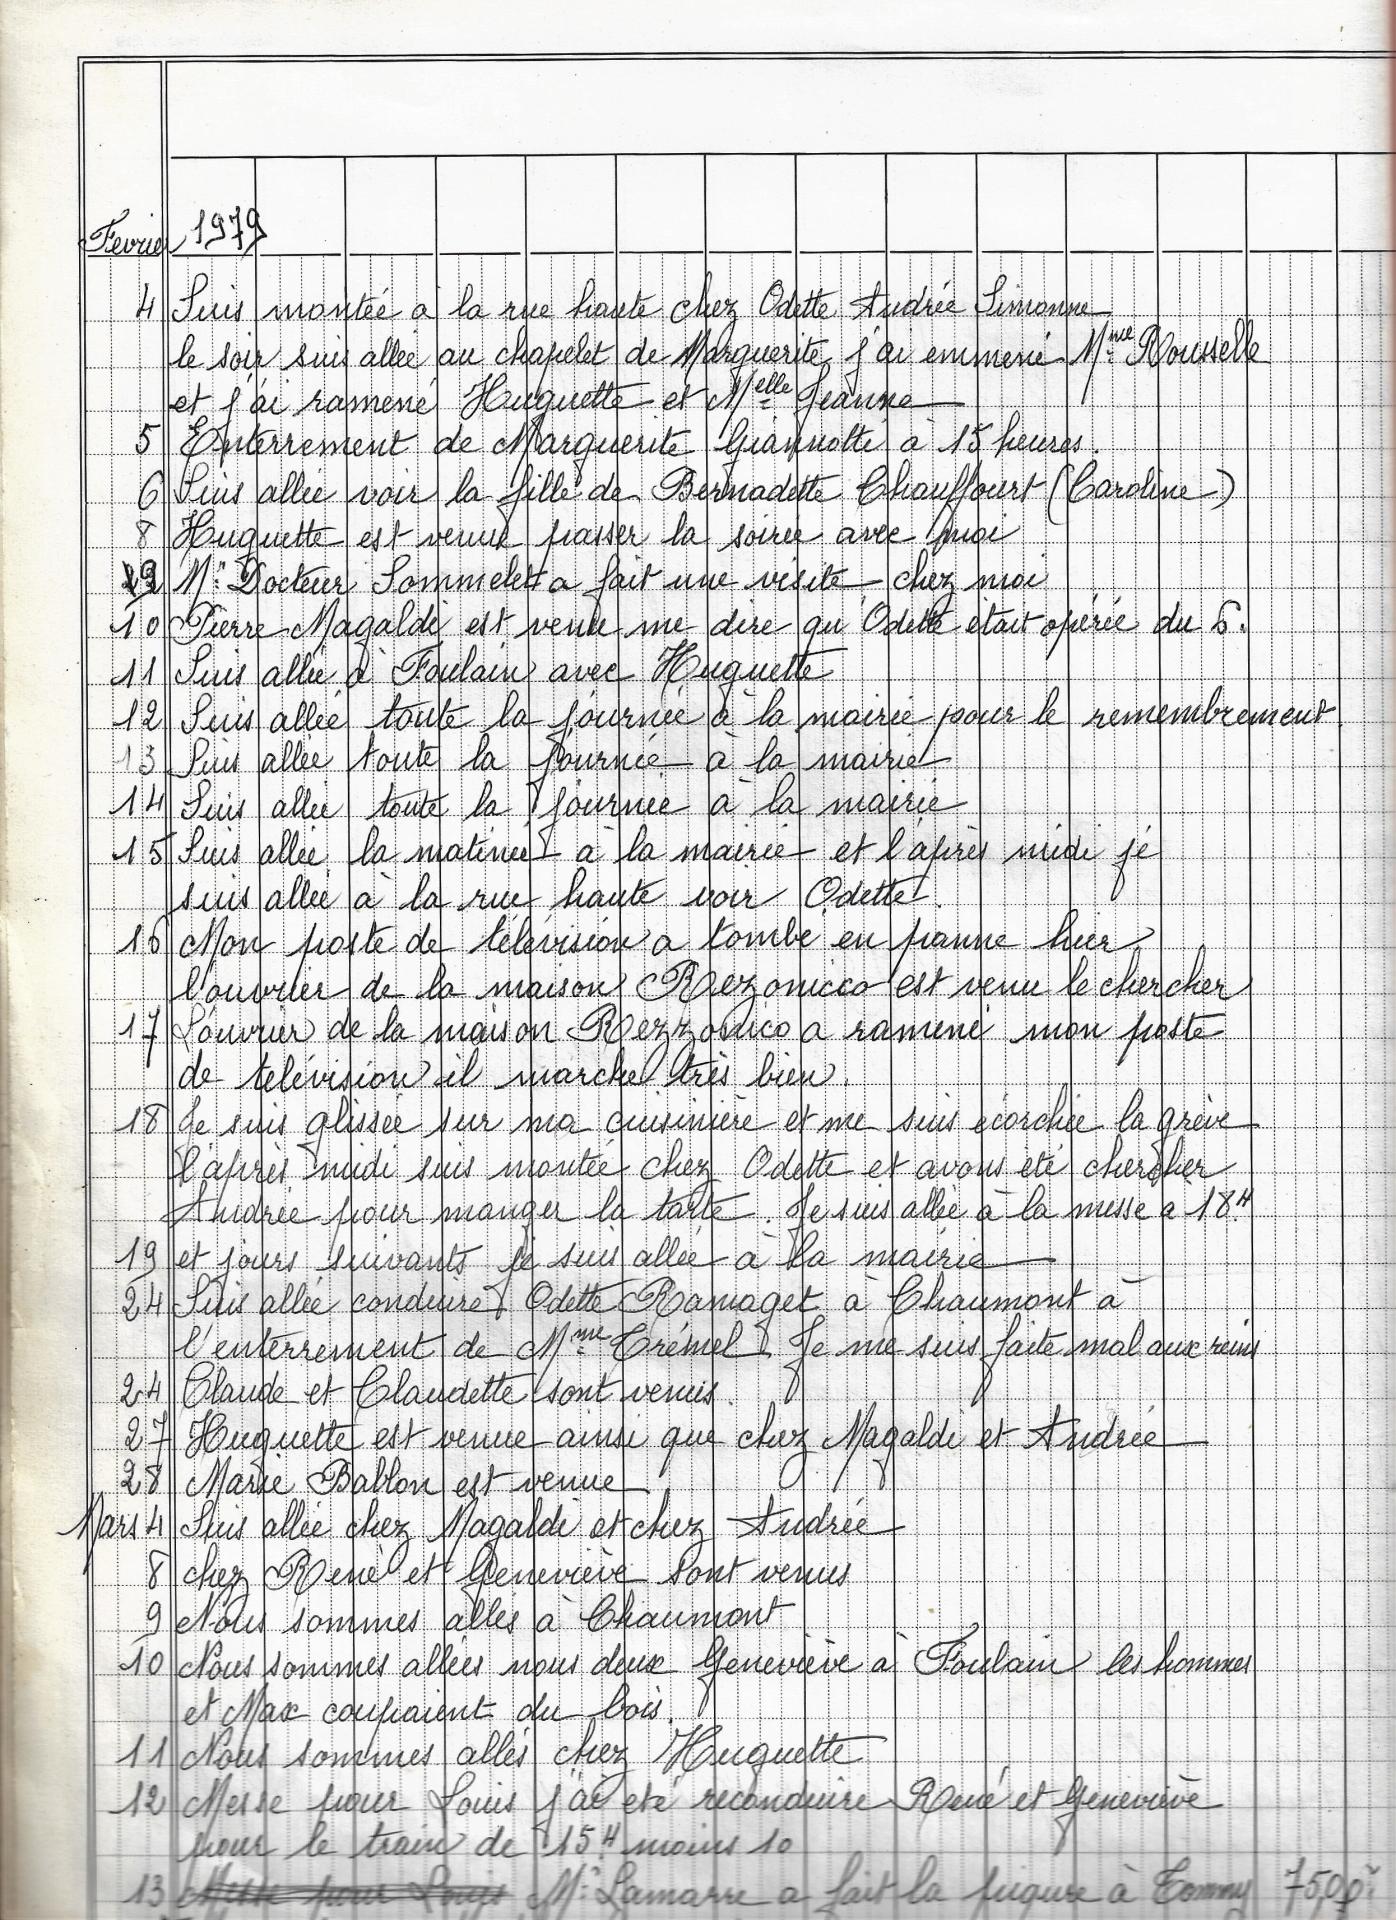 Fevrier 1979
4 Suis montée à la rue haute chez Odette Andrée Simonne
le soir suis allée au chapelet de Marguerite j'ai emmené Mme Rousselle
et j'ai ramené Huguette et Melle Jeanne
5 Enterrement de Marguerite Giannotti à 15 heures.
6 Suis allée voir la fille de Bernadette Chauffourt (Caroline)
8 Huguette est venue passer la soirée avec moi
9 Mr Docteur Sommelet a fait une visite chez moi
10 Pierre Magaldi est venu me dire qu'Odette était opérée du 6.
11 Suis allée à Foulain avec Huguette
12 Suis allée toute la journée à la mairie pour le remembrement.
13 Suis allée toute la journée à la mairie
14 Suis allée toute la journée à la mairie
15 Suis allée la matinée à la mairie et l'après midi je
suis allée à la rue haute voir Odette.
16 Mon poste de télévision a tombé en panne hier,
l'ouvrier de la maison Rezonicco est venu le chercher
17 L'ouvrier de la maison Rezzonico a ramené mon poste
de télévision il marche très bien.
18 Je suis glissée sur ma cuisinière et me suis écorchée la grève
l'après midi suis montée chez Odette et avons été chercher
Andrée pour manger la tarte. Je suis allée à la messe a 18H
19 et jours suivants je suis allée à la mairie
24 Suis allée conduire Odette Ramaget à Chaumont à
l'enterrement de Mme Trémel. Je me suis faite mal aux reins
24 Claude et Claudette sont venus.
27 Huguette est venue ainsi que chez Magaldi et Andrée
28 Marie Bablon est venue
Mars 4 Suis allée chez Magaldi et chez Andrée
8 chez René et Geneviève sont venus
9 Nous sommes allés à Chaumont
10 Nous sommes allées nous deux Geneviève à Foulain les hommes
et Max coupaient du bois.
11 Nous sommes allés chez Huguette
12 Messe pour Louis j'ai été reconduire René et Geneviève
pour le train de 15H moins 10
13 Messe pour Louis Mr Lamarre a fait la piqure à Tommy 75,00F